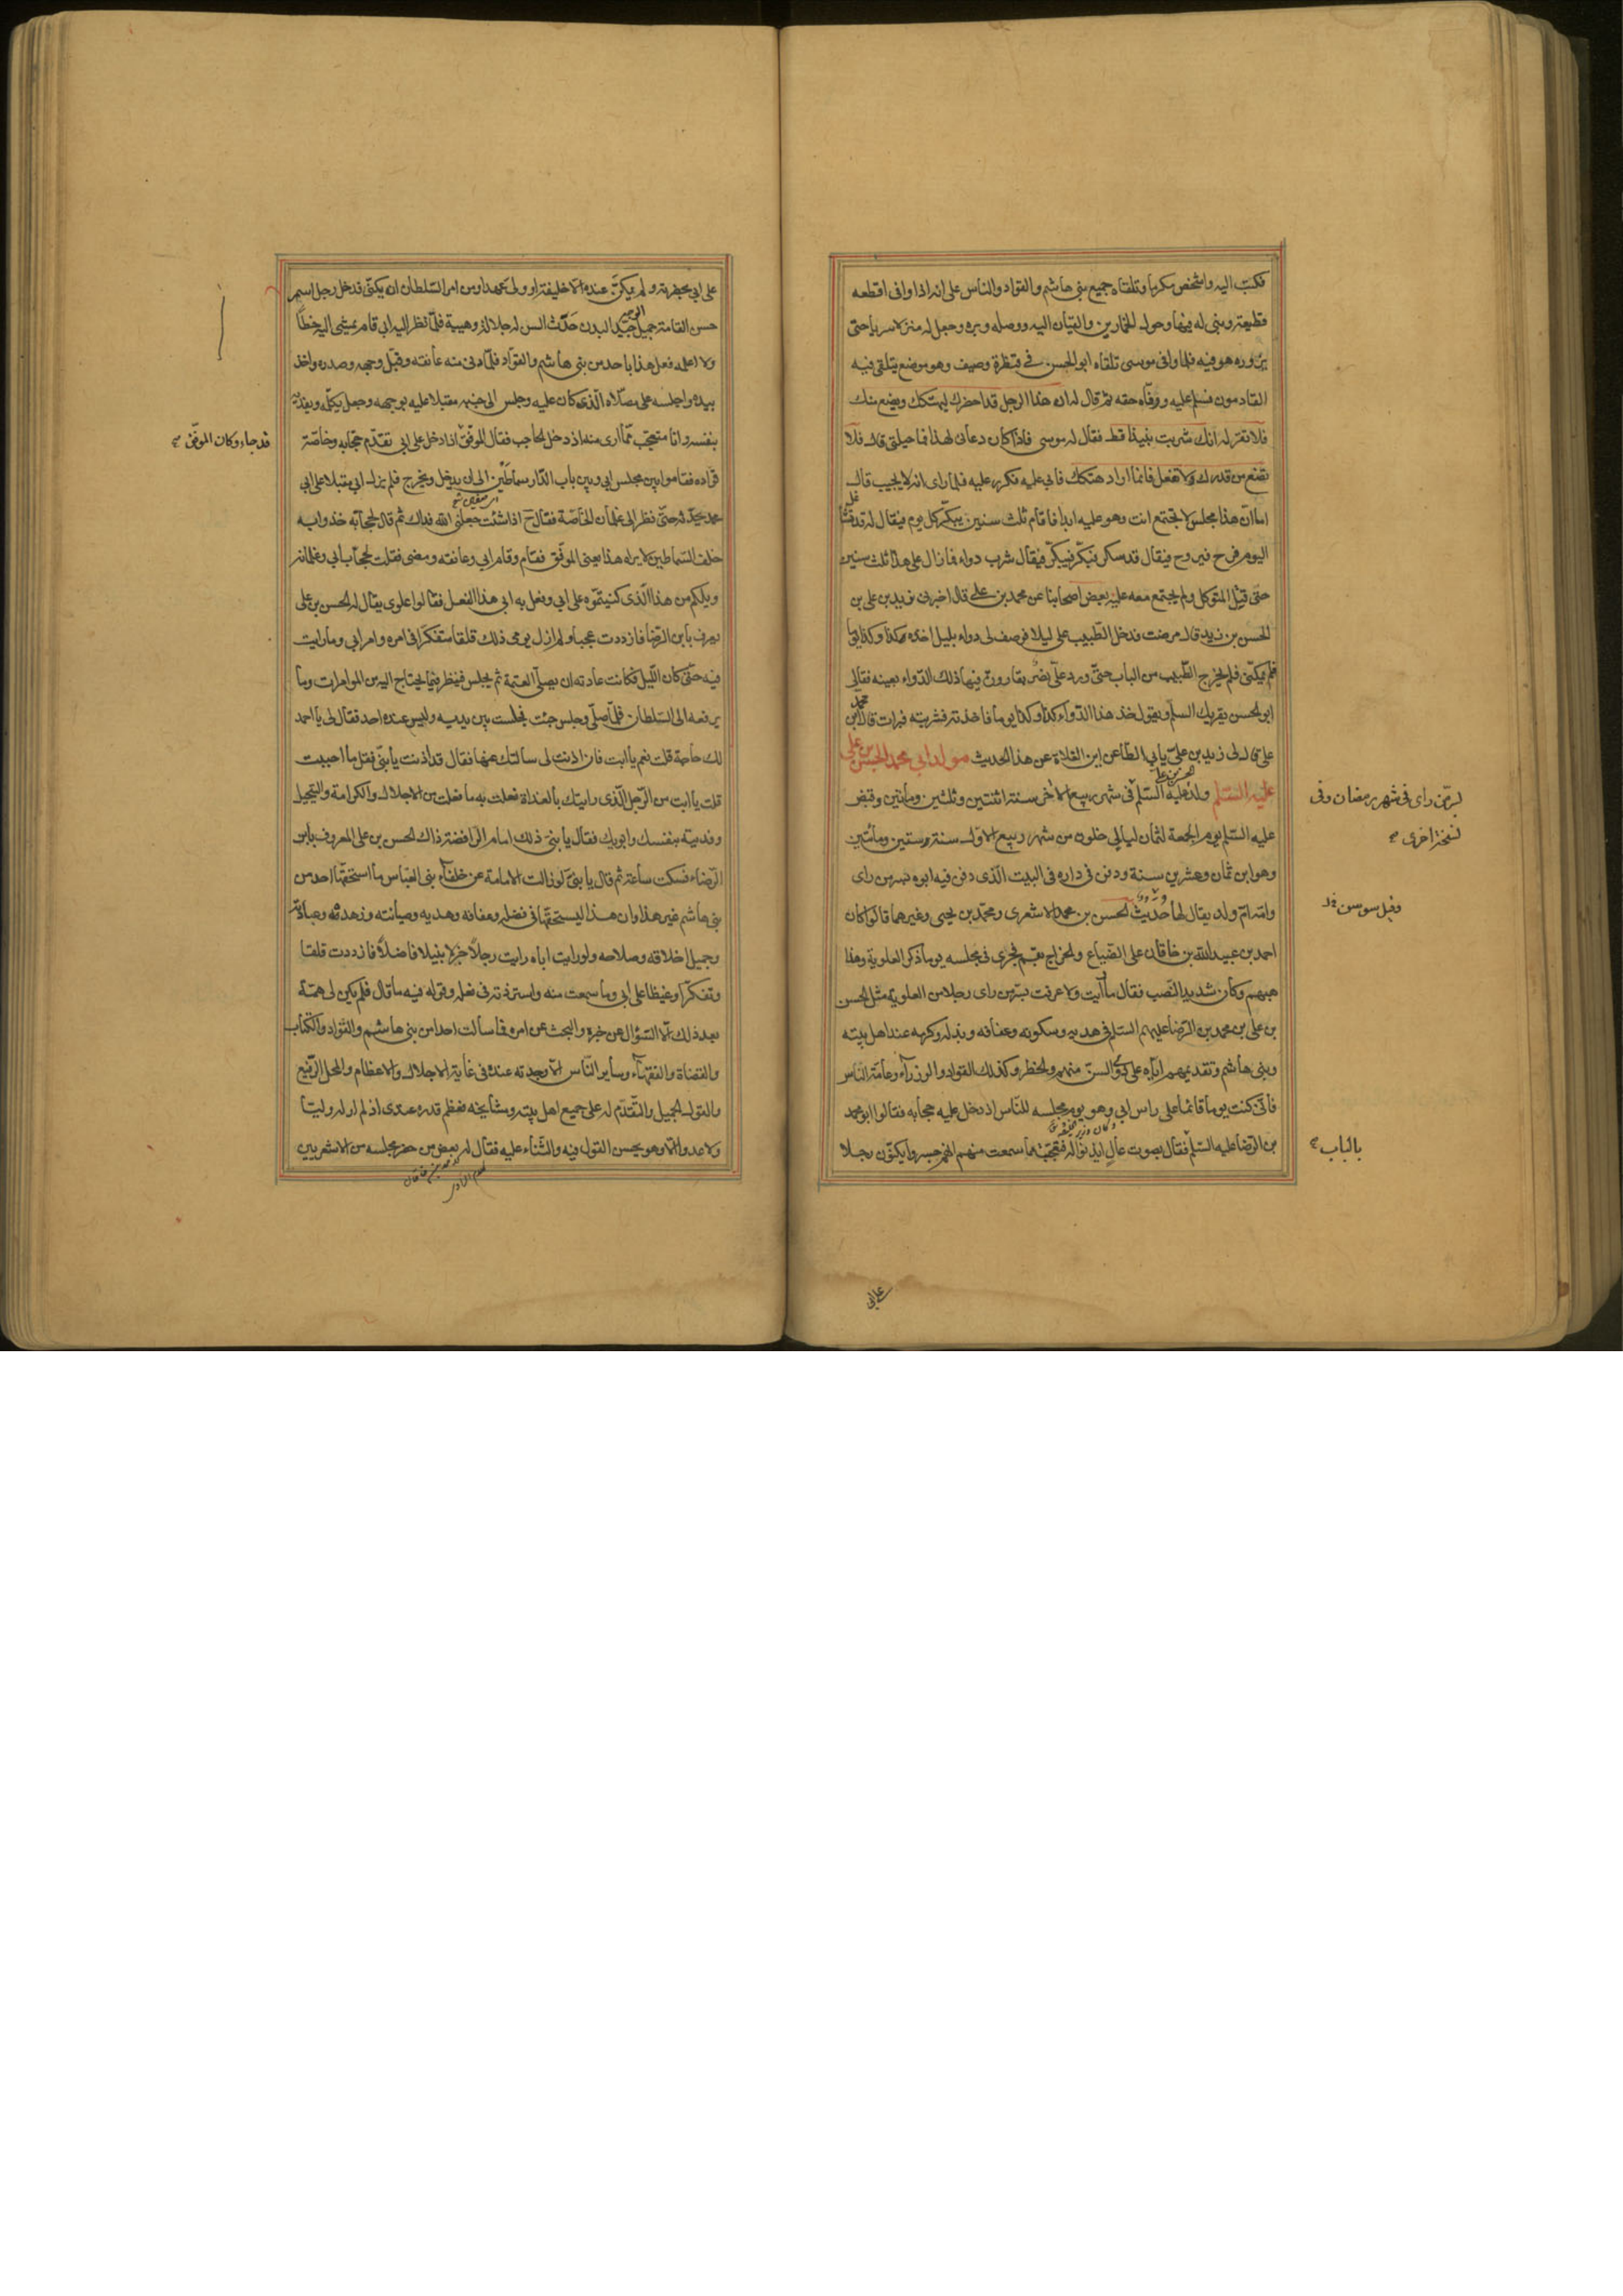 فكتب اليه واشخص مكرما وتلقاه جميع بنى هاشم والقواد والناس على انه اذا وافى اقطعه
قطيعة وبنى له فيها وحول الخمارين والقيان اليه ووصله وبره وجعل له منزلا سريا حتى
يزوره هو فيه فلما وافى موسى تلقاه ابو الحسن في قنطرة وصيف وهو موضع يتلقى فيه
القادمون فسلم عليه ووفاه حقه ثم قال له ان هذا الرجل قد احضرك ليهتكك ويضع منك
فلا تقر له انك شربت نبيذا قط فقال له موسى فاذا كان دعانى لهذا فما حيلتى قال فلا
تضع من قدرك ولا تفعل فانما اراد هتكك فابى عليه فكرر عليه فلما راى انه لا يجيب قال
اما ان هذا مجلس لا تجتمع انت وهو عليه ابدا فاقام ثلث سنين يبكر كل يوم فيقال له قد تشاغل
اليوم فرح فيروح فيقال قد سكر فبكر فيبكر فيقال شرب دواء فما زال على هذا ثلث سنين
حتى قتل المتوكل ولم يجتمع معه عليه بعض اصحابنا عن محمد بن على قال اخبرنى زيد بن على بن
الحسن بن زيد قال مرضت فدخل الطبيب على ليلا فوصف لى دواء بليل اخذه كذا وكذا يوما
فلم يمكنى فلم يخرج الطبيب من الباب حتى ورد على نصر بقارورة فيها ذلك الدواء بعينه فقال لى
ابو الحسن يقريك السلم ويقول خذ هذا الدواء كذا وكذا يوما فاخذته فشربته فبرات قال محمد بن
على قال لى زيد بن على يابى الطاعن اين الغلاة عن هذا الحديث مولد ابى محمد الحسن بن على
عليه السلم ولد عليه السلم فى شهر ربيع الاخر سنة اثنتين وثلثين ومأتين وقبض
الحسن بن على
لسر من راى فى شهر رمضان وفى
نسخة اخرى
عليه السلم يوم الجمعة لثمان ليالي خلون من شهر ربيع الاول سنة ستين ومأتين
وهو ابن ثمان وعشرين سنة ودفن فى داره فى البيت الذى دفن فيه ابوه بسر من راى
وامه ام ولد يقال لها حديث الحسن بن محمد الاشعرى ومحمد بن يحيى وغيرهما قالوا كان
وقيل سوسن
احمد بن عبيد الله بن خاقان على الضياع والخراج بقم فجرى فى مجلسه يوما ذكر العلوية ومذا
هبهم وكان شديد النصب فقال ما رايت ولا عرفت بسر من راى رجلا من العلوية مثل الحسن
بن على بن محمد بن الرضا عليهم السلم فى هديه وسكونه وعفافه ونبله وكرمه عند اهل بيته
وبنى هاشم وتقديمهم اياه على ذوى السن منهم والخطر وكذلك القواد والوزراء وعامة الناس
فانى كنت يوما قائما على راس ابي وهو يوم مجلسه للناس اذ دخل عليه حجابه فقالوا ابو محمد
بن الرضا عليه السلم فقال بصوت عال ايذنوا له فتعجبت مما سمعت منهم انهم جسروا يكنون رجلا
بالباب
على ابى
على ابي بحضرته ولم يكن عنده الا خليفة او ولى عهد او من امر السلطان ان يكنى فدخل رجل اسمر
حسن القامة جميل الوجه جيد البدن حدث السن له جلالة وهيبة فلما نظر اليه ابى قام يمشى اليه خطا
ولا اعلمه فعل هذا باحد من بنى هاشم والقواد فلما دنى منه عانقه وقبل وجهه وصدره واخذ
بيده واجلسه على مصلاه الذى كان عليه وجلس الى جنبه مقبلا عليه بوجهه وجعل يكلمه ويفديه
بنفسه وانا متعجب مما ارى منه اذ دخل الحاجب فقال الموفق اذا دخل على ابى تقدم حجابه وخاصة
قد جاء وكان الموفق
قواده فقاموا بين مجلس ابى وبين باب الدار سماطين الى ان يدخل ويخرج فلم يزل ابى مقبلا على ابى
محمد يحدثه حتى نظر الى غلمان الخاصة فقال ح اذا شئت جعلنى الله فداك ثم قال لحجابه خذوا به
خلف السماطين لا يراه هذا يعنى الموفق فقام وقام ابى وعانقه ومضى فقلت لحجاب ابى وغلمانه
ويلكم من هذا الذى كنيتموه على ابى وفعل به ابى هذا الفعل فقالوا علوى يقال له الحسن بن على
يعرف بابن الرضا فازددت عجبا ولم ازل يومى ذلك قلقا متفكرا فى امره وامر ابى وما رايت
فيه حتى كان الليل فكانت عادته ان يصلى العتمة ثم يجلس فينظر فيما يحتاج اليه من المؤامرات وما
يرفعه الى السلطان فلما صلى وجلس جئت فجلست بين يديه وليس عنده احد فقال لى يا احمد
لك حاجة قلت نعم يا ابت فان اذنت لى سالتك عنها فقال قد اذنت يا بنى فقل ما احببت
قلت يا ابت من الرجل الذى رايتك بالغداة فعلت به ما فعلت من الاجلال والكرامة والتبجيل
وفديته بنفسك وابويك فقال يا بنى ذلك امام الرافضة ذاك الحسن بن على المعروف بابن
الرضا فسكت ساعة ثم قال يا بنى لو زالت الامامة عن خلفاء بنى العباس ما استحقها احد من
بنى هاشم غير هذا وان هذا ليستحقها فى فضله وعفافه وهديه وصيانته وزهده وعبادته
وجميل اخلاقه وصلاحه ولو رايت اباه رايت رجلا جزلا نبيلا فاضلا فازددت قلقا
وتفكرا وغيظا على ابى وما سمعت منه واستزدته فى فعله وقوله فيه ما قال فلم يكن لى همة
بعد ذلك الا السؤال عن خبره والبحث عن امره فما سالت احدا من بنى هاشم والقواد والكتاب
والقضاة والفقهاء وساير الناس الا وجدته عنده فى غاية الاجلال والاعظام والمحل الرفيع
والقول الجميل والتقدم له على جميع اهل بيته ومشايخه فعظم قدره عندى اذ لم ار له وليا
ولا عدوا الا وهو يحسن القول فيه والثناء عليه فقال له بعض من حضر مجلسه من الاشعريين